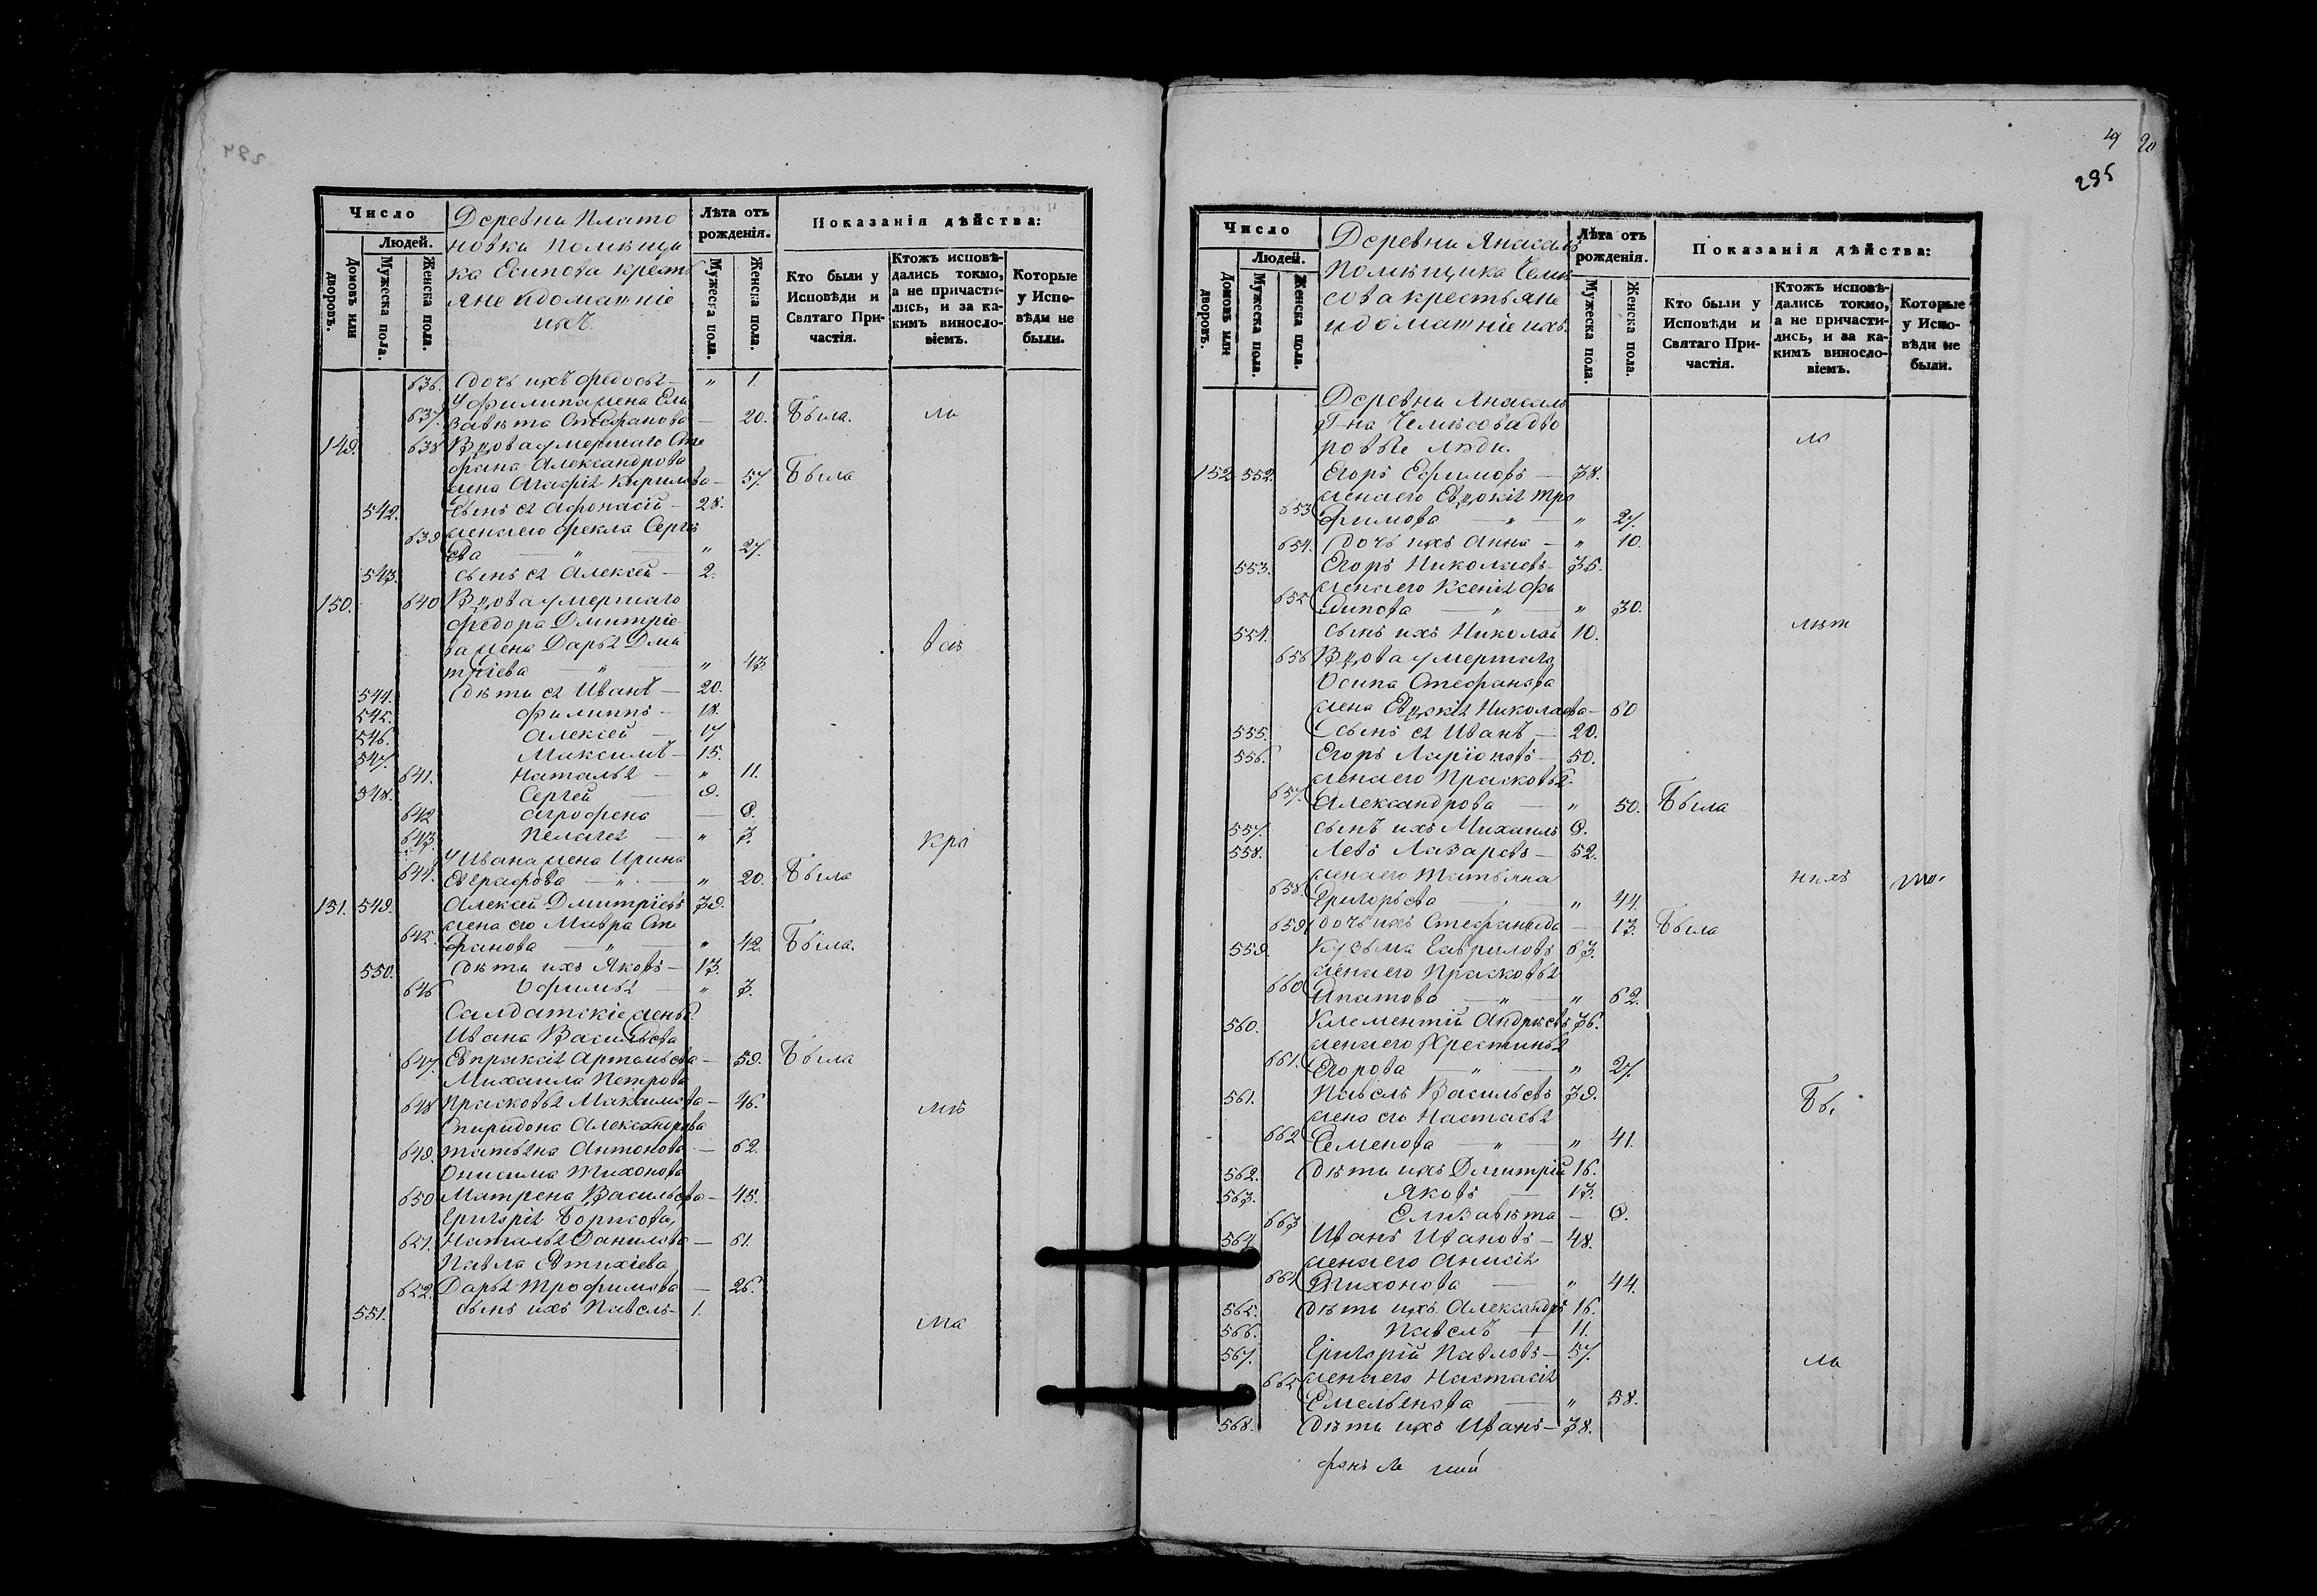 294
Число
Людей.
Домовъ или дворовъ.
Мужеска пола.
Женска пола.
Деревни Плато
новки помѣщи
ка Есипова кресть
яне и домашніе
ихъ
Лѣта отъ рожденія.
Мужеска пола.
Женска пола.
Показанія дѣйства:
Кто были у Исповѣди и Святаго Причастія.
Ктожъ исповѣдались токмо, а не причастились, и за какимъ винословіемъ.
Которые у Исповѣди не были.
636. дочь ихъ Федосья — " 1.
У Филипа жена Ели
637. завѣта Стефанова — 20. Была. ли
149. 638 Вдова умершаго Сте
фана Александрова
жена Агафія Кирилова — 57. Была
542. Сынъ ея Афонасій — 28.
639 жена его Фекла Серге
ева — " — " 27.
543. сынъ ея Алексѣй — 2.
150. 640 Вдова умершаго
Федора Дмитріе
ва жена Дарья Дми
тріева — " — " 43.
544. Дѣти ея Иванъ — 20.
545. Филиппъ — 18.
546. Алексѣй — 17
547. Максимъ — 15.
641. Наталья — " 11.
548. Сергей — 9.
642 Агрофена —
643. Пелагея — " 3. кре
У Ивана жена Ирина
644. Евграфова — " — " 20. Была
151. 549. Алексѣй Дмитріевъ 39.
жена его Мавра Сте
645. фанова — " — " 42. Была.
550. Дѣти ихъ Яковъ — 13.
646 Офимья — " 3.
Салдатскіе жены
Ивана Васильева
647. Евпраксія Артемьева — 59. Была
Михаила Петрова
648 Прасковья Максимова — 46.
Спиридона Александрова
649. Татьяна Антонова — 62.
Онисима Тихонова
650 Матрена Васильева — 45.
Григорія Борисова,
651. Наталья Данилова — 61.
Павла Евтихіева
652. Дарья Трофимова — 26.
551. сынъ ихъ Павелъ — 1.
ма
19 20
295
Число
Людей.
Домовъ или дворовъ.
Мужеска пола.
Женска пола.
Деревни Янасаль
помѣщика Челю
сова крестьяне
и домашніе ихъ.
Лѣта отъ рожденія.
Мужеска пола.
Женска пола.
Показанія дѣйства:
Кто были у Исповѣди и Святаго Причастія.
Ктожъ исповѣдались токмо, а не причастились, и за какимъ винословіемъ.
Которые у Исповѣди не были.
Деревни Янасаль
Г-на дво
ровые люди.
152. 552. Егоръ Ефимовъ — 38.
жена его Евдокія Тро
653 фимова — " — " 27.
654. дочь ихъ Анна — " 10.
553. Егоръ Николаевъ — 35.
жена его Ксенія Фи
655 липова — " — " 30.
554. сынъ ихъ Николай 10.
656 Вдова умершаго
Осипа Стефанова
жена Евдокія Николаева — 60
555. Сынъ ея Иванъ — 20.
556. Егоръ Ларіоновъ — 50.
жена его Прасковья
657. Александрова — " 50. Была
557. сынъ ихъ Михаилъ
558. Левъ Лазаревъ — 52.
жена его Татьяна
658. Григорьева — " 44.
659 дочь ихъ Стефанида — 13. Была
559. Кузьма Гавриловъ 63.
жена его Прасковья
660 Ипатова — " — " 62.
560. Клементій Андреевъ 36.
жена его Христинья
661. Егорова — " — " 27.
561. Павелъ Васильевъ 39.
жена его Настасья
662 Семенова — " — " 41.
562. Дѣти ихъ Дмитрій 16.
563. Яковъ — 13.
663 Елизавѣта —
564 Иванъ Ивановъ — 48.
жена его Анисія
664 Тихонова — " 44.
565. Дѣти ихъ Александръ 16.
566. Павелъ — 11.
567. Григорій Павловъ — 57.
665 жена его Настасія
Емельянова — " 58.
568. Дѣти ихъ Иванъ — 38.